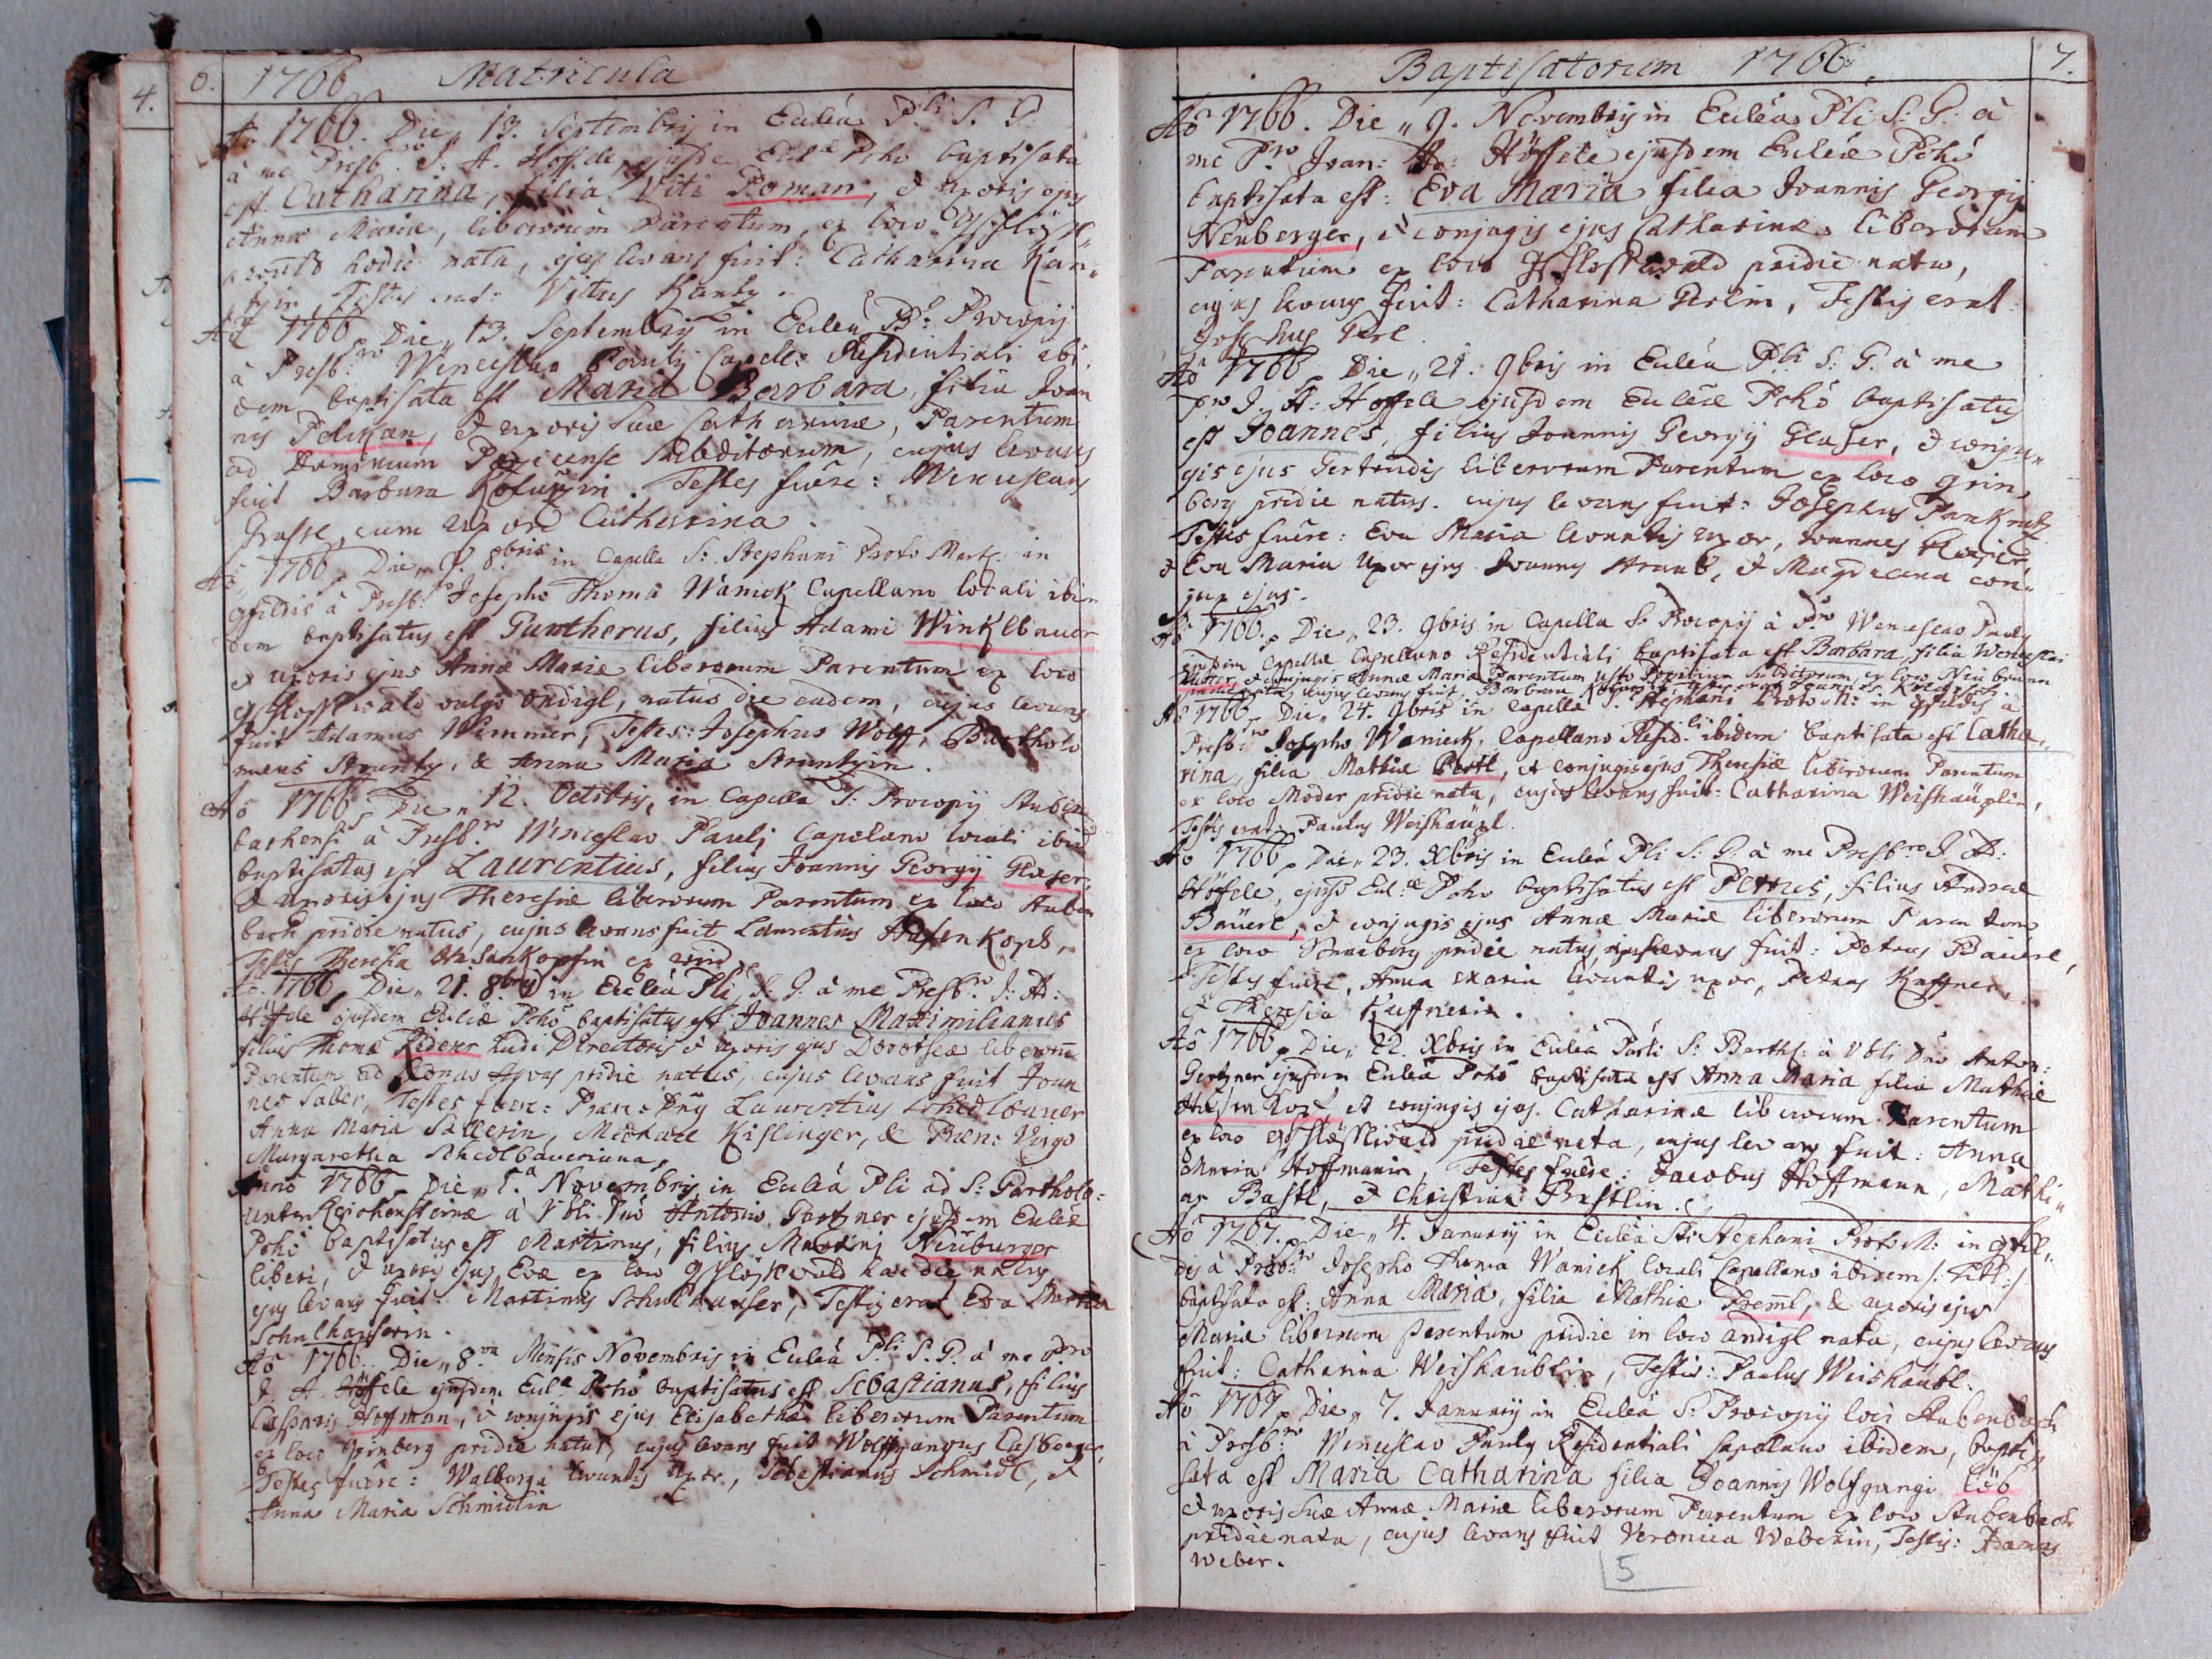 4.
6. 1766 Matricula
Ao 1766. Die 13. Septembrij in Eccleâ Pli S. G.
à me Presb.ro J. A. Höffele, ejusde Eccla Pcho baptisata
est Catharina, filia Viti Poman, & uxoris ejus
Annæ Mariæ, liberorum Parentum, ex loco
hodie nata, ejus levans fuit: Catharina Kan„
tzin, Testis erat: Vitus Kantz.
Ao 1766 Die 13. Septembrij in Eccleâ Procopij
à Presb:ro Wenceslao Pauly Capell: Residentiali ibi„
dem baptisata est Maria Barbara, filia Joan
nis Polikan, & uxoris suæ Catharinæ, Parentum
ad Dominium subditorum, cujus levans
fuit Barbara. Testes fuêre: Wenceslaus
Grassl, cum uxore Catharina.
Ao 1766 Die 9. 8bris in Capella S: Stephani Proto Mart: in
gfildis à Presb:ro Josepho Thoma Waniek Capellano locali ibi„
dem baptisatus est Guntherus, filius Adami Winklbauer
& uxoris ejus Annæ Mariæ liberorum Parentum ex loco
gschlosslwald vulgò Andigl, natus die eadem, cujus levans
fuit Adamus Wimmer, Testes: Josephus Wolff, Bartholo
mæus Stuntz, & Anna Maria Stuntzin.
Ao 1766 Die 12. Octobris, in Capella S: Procopij Stuben
bachensi à Presb.ro Wenceslao Pauly Capelano locali ibid
baptisatus est Laurentius, filius Joannis Georgij Glaser,
& uxoris ejus Theresiæ liberorum Parentum ex loco Stuben
bach pridie natus, cujus levans fuit Laurentius Hasenkopf,
Testis Theresia Hasenkopfin ex
Ao 1766 Die 21. 8bris in Eccleâ Pli S. G. à me Presb:ro J: A:
Höffele ejusdem Eccleæ Pcho baptisatus est Joannes Maximilianus
filius Thomæ Rederer Ludi Directoris & uxoris ejus Dorotheæ liberorū
Parentum ad Rdnas Aquas pridie natus, cujus levans fuit Joan
nes Saller, Testes fuere: Præn: Dny Laurentius Schedlbauer
Anna Maria Sallerin, Michael Kislinger, & Præn: Virgo
Margaretha Schedlbaueriana.
Anno 1766 Die 1.a Novembris, in Eccleâ Pli ad S: Bartholo:
Unter Reichensteinæ à Vbli Dno Antonio Gertzner ejusdem Eccleæ
Pcho baptisatus est Martinus, filius Martini Neuburger
liberi, & uxoris ejus Evæ ex loco gschlösslwald hac die natus
ejus levans fuit: Martinus Schulhauser, Testis erat Eva Maria
Schulhauserin.
Ao 1766. Die 8.va Mensis Novembris in Eccleâ Pli S. G. à me Pro
J. A. Höffele ejusdem Eccla Pcho baptisatus est Sebastianus, filius
Casparis Hoffman, & conjugis ejus Elisabethæ liberorum Parentum
ex loco Grinberg pridie natus, cujus levans fuit Wolffgangus
Testes fuêre: Walburga levantis uxor, Sebastianus Schmidl, &
Anna Maria Schmidlin
Baptisatorum 1766 7.
Ao 1766. Die 9. Novembrij in Eccleâ Pli S: G: à
me Pro Joan: Ad: Höffele ejusdem Eccleæ Pcho
baptisata est: Eva Maria filia Joannis Georgij
Neuberger, & conjugis ejus Catharinæ liberorum
Parentum ex loco Gschlosslwald pridie nata,
cujus levans fuit: Catharina Perlin, Testis erat
Josephus Perl.
Ao 1766 Die 21. 9bris in Eccleâ Pli S: G. à me
Pro J. A: Höffele ejusdem Eccleæ Pcho baptisatus
est Joannes, filius Joannis Georgij Glaser, & conju„
gis ejus Gertrudis liberorum Parentum ex loco Grin„
berg pridie natus. cujus levans fuit: Josephus Pankratz
Testes fuêre: Eva Maria levantis uxor, Joannes
& Eva Maria Uxor ejus Joannes Straub, & Magdalena con„
jux ejus.
Ao 1766. Die 23. 9bris in Capella S. Procopij à Pro Wenceslao Pauly
ejusdem Capellæ Capellano Residentiali baptisata est Barbara, filia Wenceslai
& conjugis Annæ Mariæ Parentum subditorum, ex loco Neubrunn
pridie nata, cujus levans fuit, Barbara
Ao 1766 Die 24. 9bris in Capella S. Stephani Proto M: in gfildis à
Presb:ro Josepho Waniek, Capellano Resid:li ibidem baptisata est Catha„
rina, filia Mathiæ Pertl, & conjugis ejus Theresiæ liberorum Parentum
ex loco Moder pridie nata, cujus levans fuit: Catharina Weishäuplin,
Testis erat: Paulus Weishäupl.
Ao 1766 Die 23. Xbris in Eccleâ Pli S: G. à me Presb:ro J. Ad:
Höffele, ejusd Eccl:æ Pcho baptisatus est Petrus, filius Andreæ
Bäuerl, & conjugis ejus Annæ Mariæ liberorum Parentum
ex loco pridie natus cujus levans fuit: Petrus Bäuerl,
Testes fuêre, Anna Maria levantis uxor, Petrus Kuffner,
& Theresia Kuffnerin.
Ao 1766 Die 22. Xbris in Eccleâ Parli S: Barthl: à Vbli Dno Anton:
Gertzner ejusdem Eccleæ Pcho baptisata est Anna Maria filia Mathiæ
Hasenkopf, & conjugis ejus Catharinæ liberorum Parentum
ex loco gschlösslwald pridie nata, cujus levans fuit: Anna
Maria Hoffmanin, Testes fuêre: Jacobus Hoffmann, Mathi„
as Bastl, & Christina Bastlin.
Ao 1767. Die 4. January in Eccleâ Sti Stephani Proto M: in gfil„
dis à Presb:ro Josepho Thoma Waniek locali Capellano ibidem /: titt :/
baptisata est: Anna Maria, filia Mathiæ Preml, & uxoris ejus
Mariæ liberorum Parentum pridie in loco Andigl nata, cujus levans
fuit: Catharina Weishaiiblin, Testis: Paulus Weishaubl.
Ao 1767 Die 7. January in Eccleâ S: Procopij loci Stubenbach
à Presb:ro Wenceslao Pauly Residentiali Capelano ibidem, bapti„
sata est Maria Catharina filia Joannis Wolfgangi Löb
& uxoris suæ Annæ Mariæ liberorum Parentum ex loco Stubenbach
pridie nata, cujus levans fuit Veronica Weberin, Testis: Adamus
Weber.
5